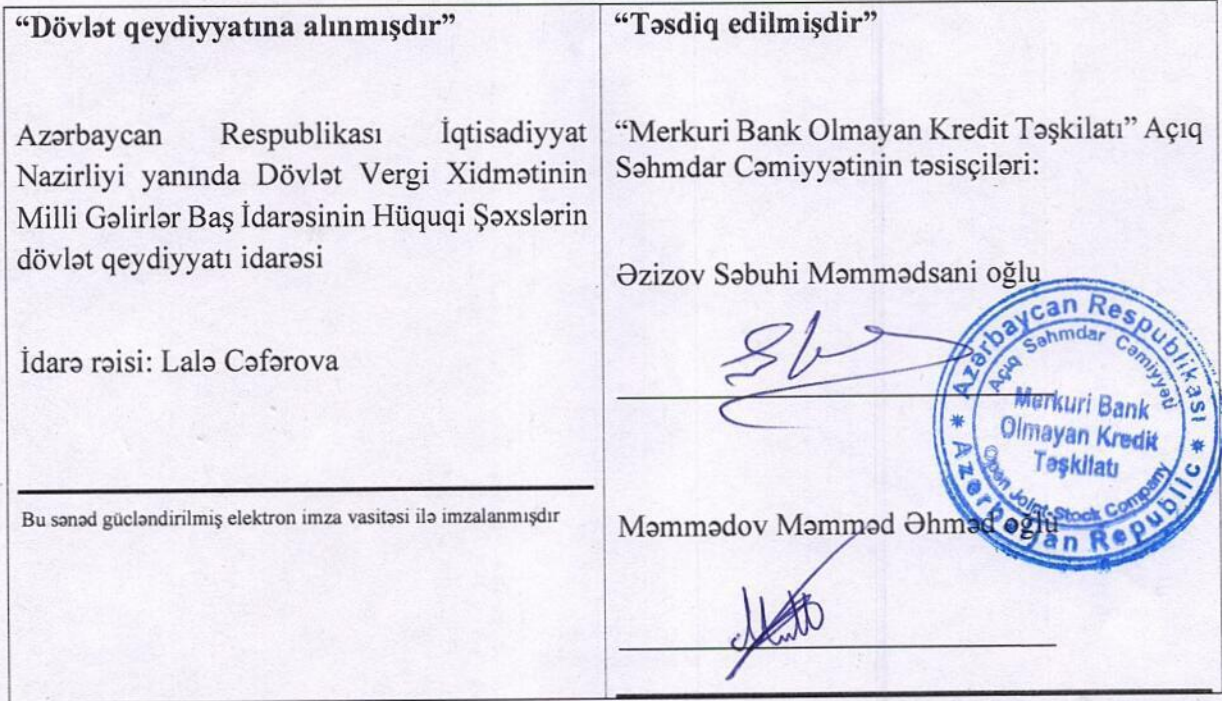 “Dövlət qeydiyyatına alınmışdır”
Azərbaycan Respublikası İqtisadiyyat
Nazirliyi yanında Dövlət Vergi Xidmətinin
Milli Gəlirlər Baş İdarəsinin Hüquqi Şəxslərin
dövlət qeydiyyatı idarəsi
İdarə rəisi: Lalə Cəfərova
Bu sənəd gücləndirilmiş elektron imza vasitəsi ilə imzalanmışdır
“Təsdiq edilmişdir”
“Merkuri Bank Olmayan Kredit Təşkilatı” Açıq
Səhmdar Cəmiyyətinin təsisçiləri:
Əzizov Səbuhi Məmmədsani oğlu
Azərbaycan Respublikası
Açıq Səhmdar Cəmiyyəti
Merkuri Bank
Olmayan Kredit
Təşkilatı
Open Joint-Stock Company
Azerbaijan Republic
Məmmədov Məmməd Əhməd oğlu